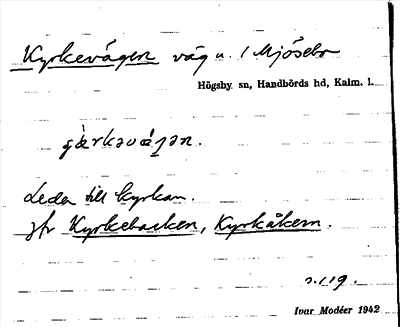 Kyrkevägen väg u. / Mjösebo
Högsby sn, Handbörds hd, Kalm. l.
Leder till kyrkan.
jfr Kyrkebacken, Kyrkåkern.
s. 119.
Ivar Modéer 1942